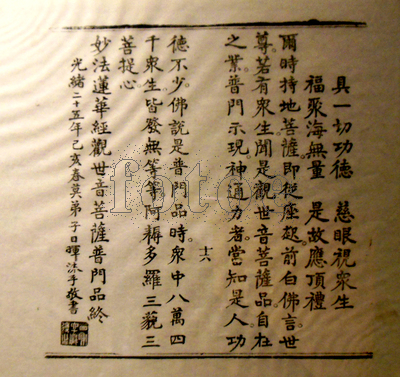 具一切功德 慈眼視衆生
福聚海無量 是故應頂禮
爾時持地菩薩即從座起前白佛言世
尊若有衆生聞是觀世音菩薩品自在
之業普門示現神通力者當知是人功
十六
德不少佛說是普門品時衆中八萬四
千衆生皆發無等等阿耨多羅三藐三
菩提心
妙法蓮華經觀世音菩薩普門品終
光緒二十五年己亥春莫弟子日暉沐手敬書
fotoe